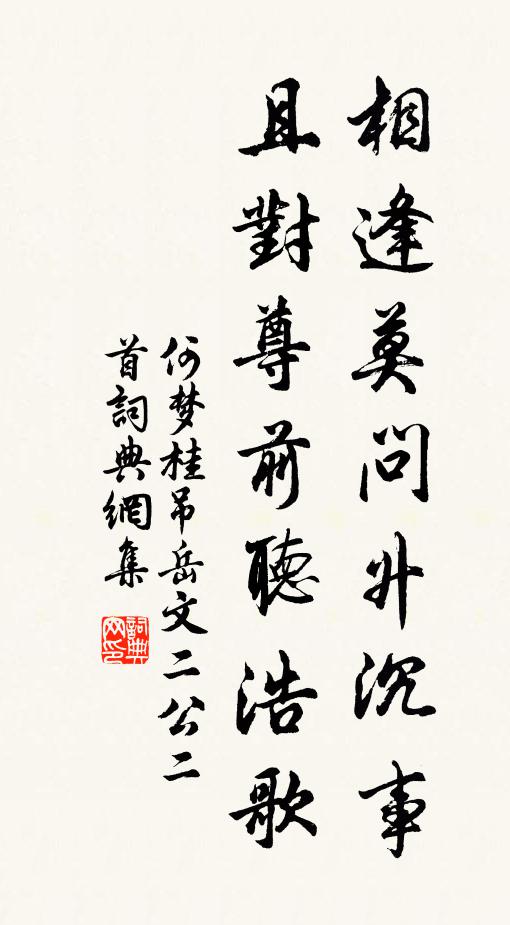 相逢莫問升沉事
且對尊前聽浩歌
何梦桂吊岳文二公二
首詞典網集
詞典
网印